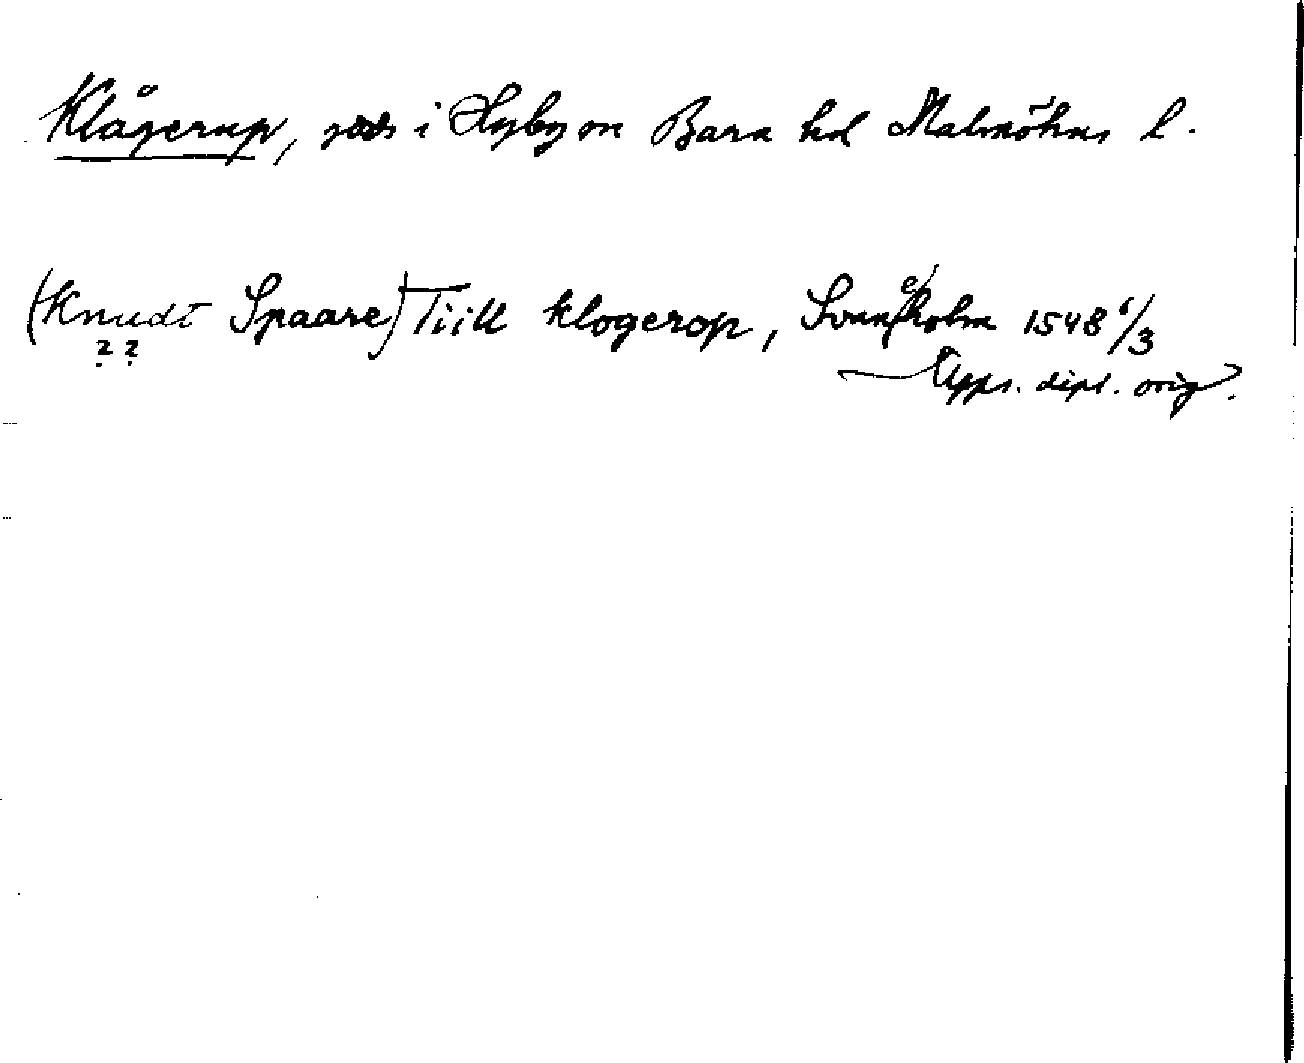 Klågerup, gods i Hyby sn Bara hd Malmöhus l.
(Knudt Spaare) Tiill klogerop, Svaneholm 1548 6/3
? ?
Upps. dipl. orig.